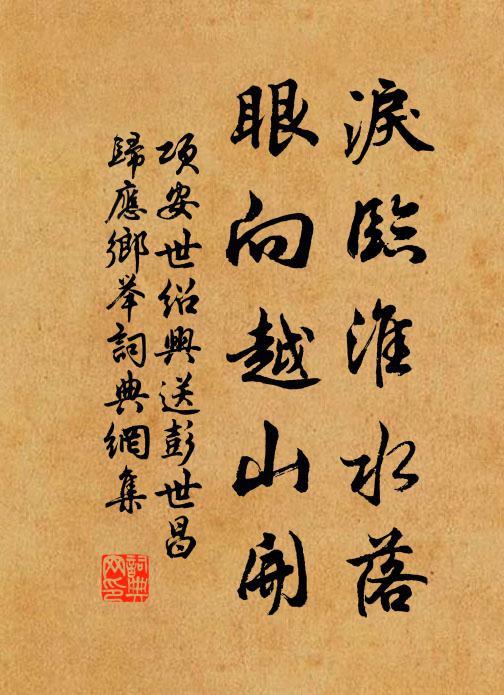 淚臨淮水落
眼向越山開
項安世紹興送彭世昌
歸應鄉举詞典網集
詞典网印